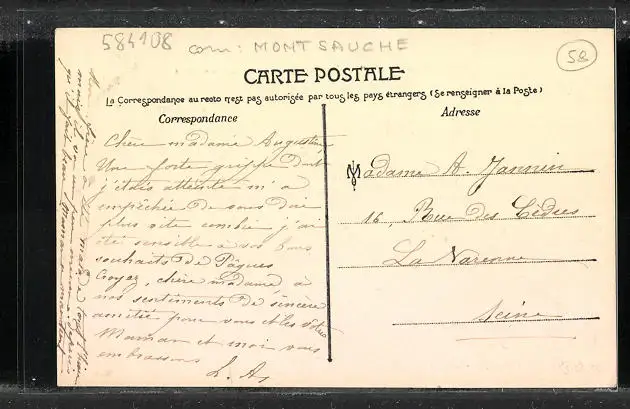 584108 com: MONTSAUCHE
58
CARTE POSTALE
La Correspondance au recto n'est pas autorisée par tous les pays étrangers (Se renseigner à la Poste)
Correspondance
Adresse
Chère madame Augustine
Une forte grippe dont
j'étais atteinte m'a
empêchée de vous dire
plus vite combien j'ai
été sensible à vos bons
souhaits de Pâques
Croyez, chère madame à
nos sentiments de sincère
amitié pour vous et les vôtres
Maman et moi vous
embrassons
L. A.
Madame A. Jannin
16, Rue des Cèdres
La Varenne
Seine